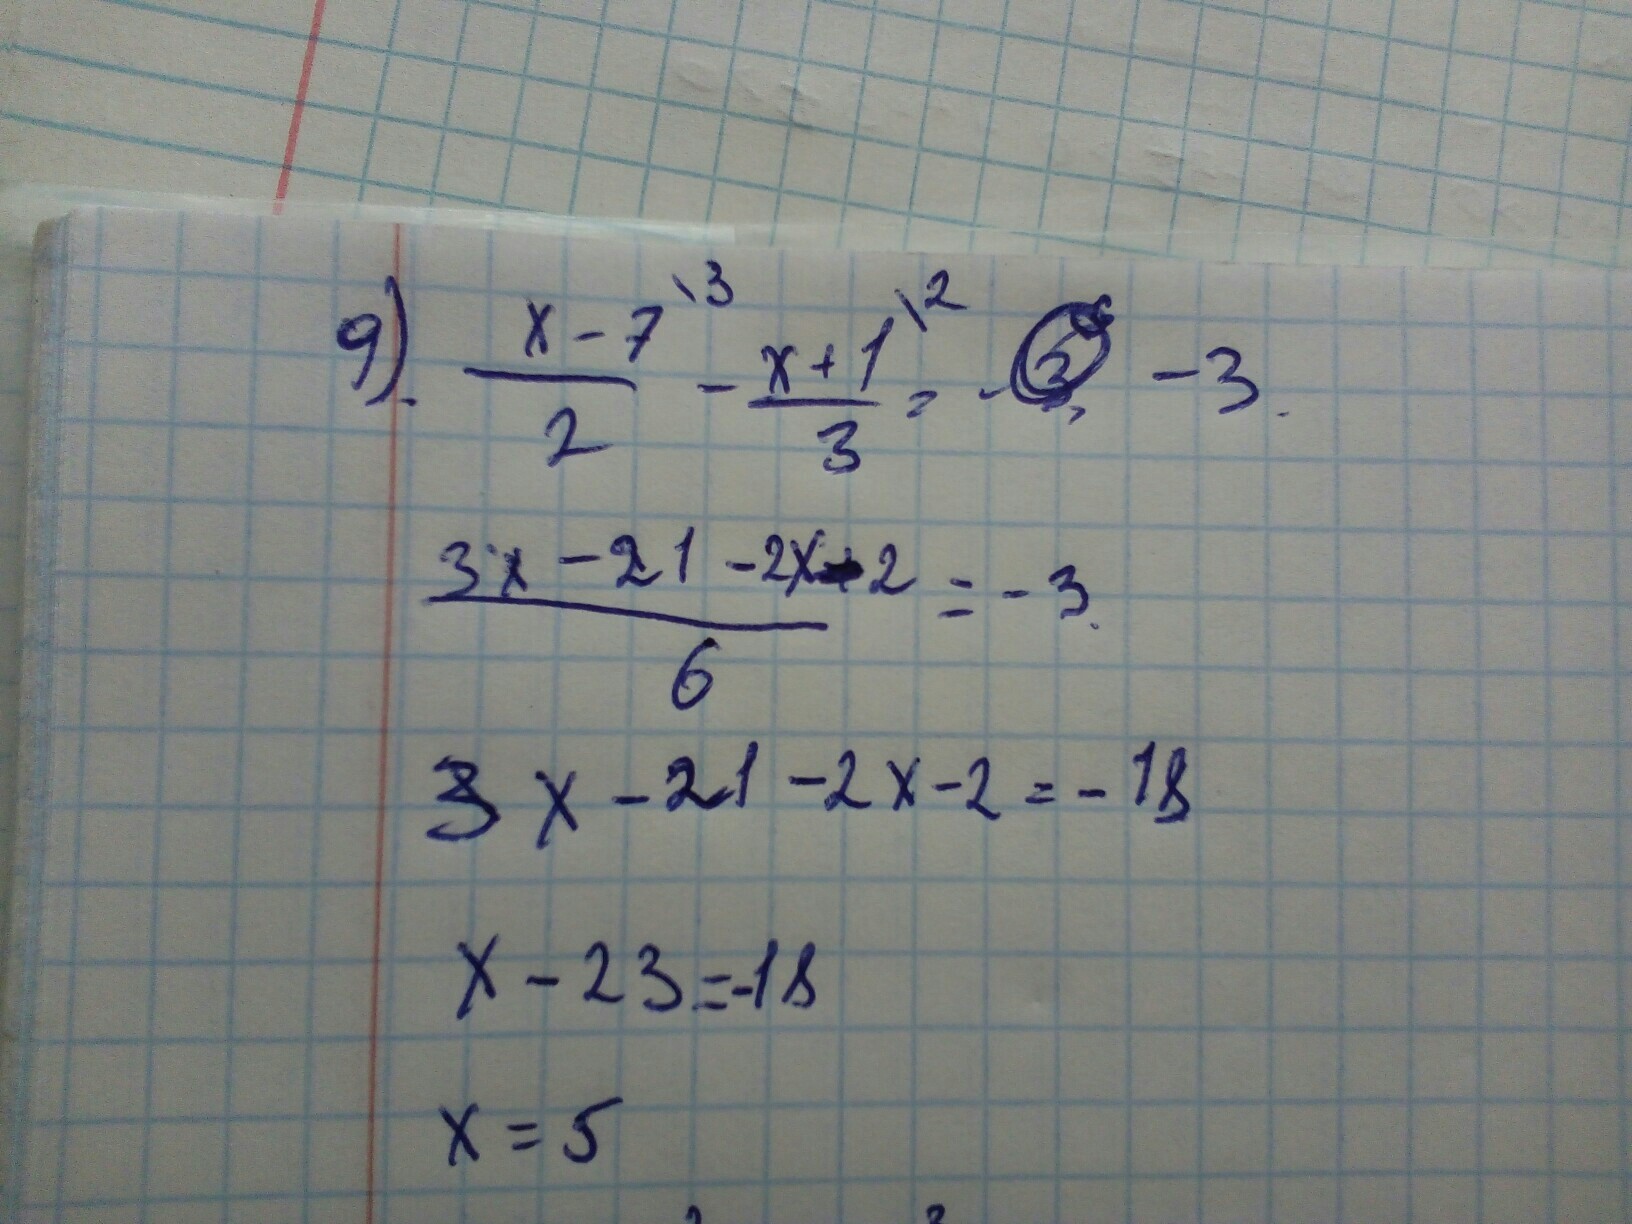 9). \frac{x-7^{\3}}{2} - \frac{x+1^{\2}}{3} = - -3.
\frac{3x-21-2x-2}{6} = -3.
3x-21-2x-2=-18
x-23=-18
x=5
2 3